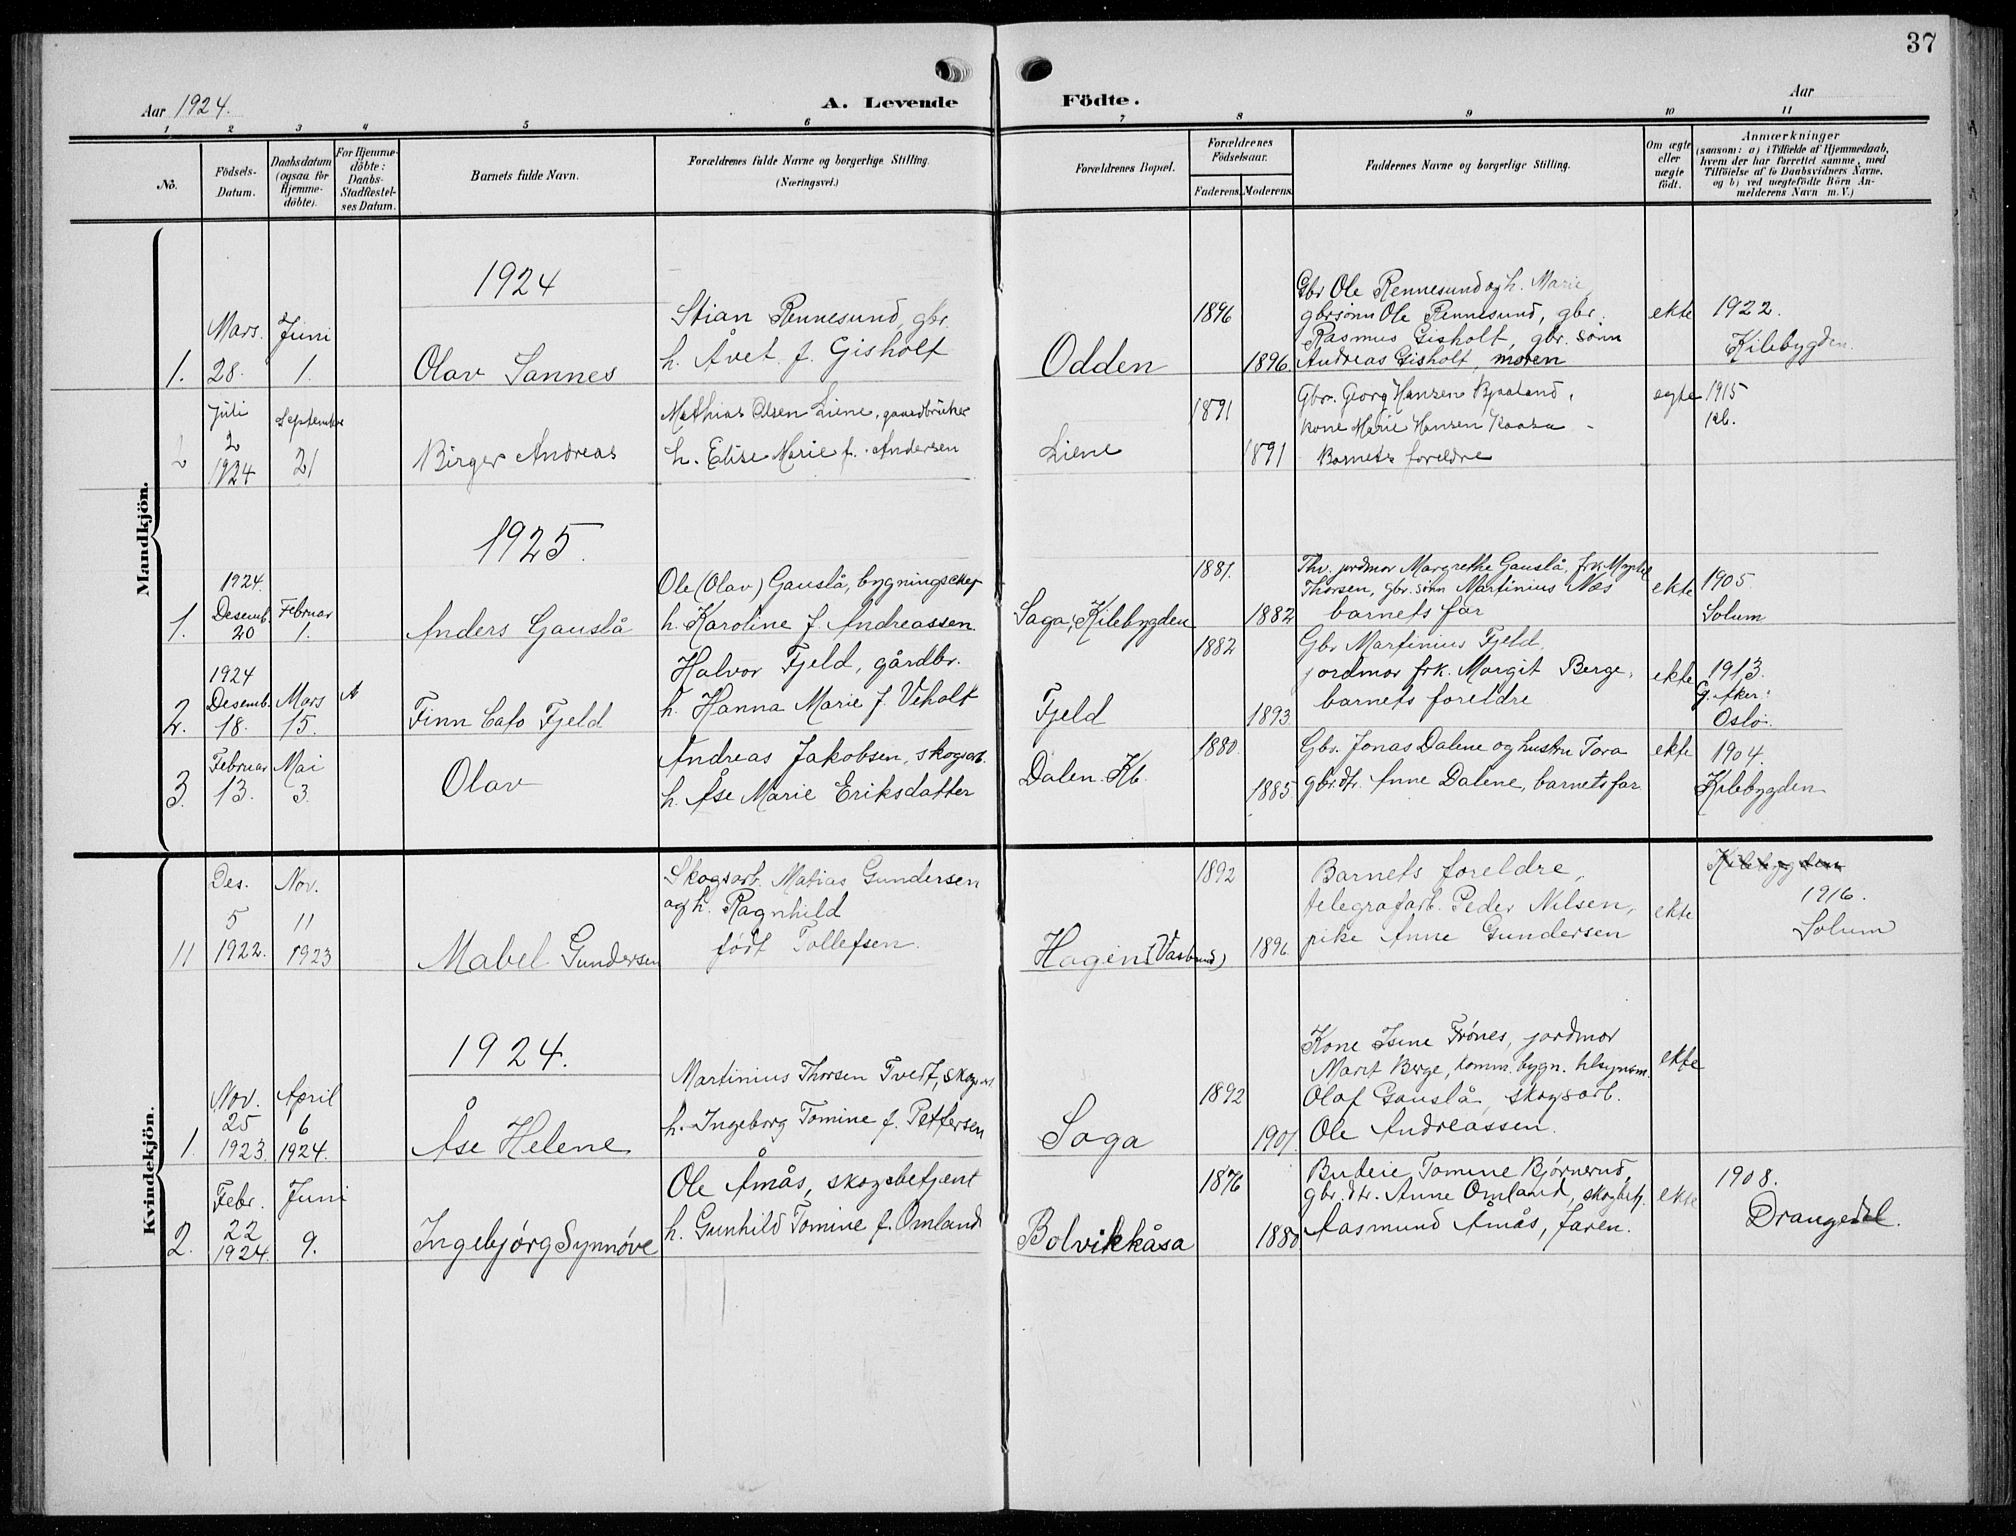 37
Aar 1924.
A. Levende
Födte.
Aar
1 2 3 4 5 6 7 8 9 10 11
No.
Födsels-Datum.
Daabsdatum (ogsaa for Hjemme-döbte).
For Hjemme-döbte: Daabs-Stadfæstel-ses Datum.
Barnets fulde Navn.
Forældrenes fulde Navne og borgerlige Stilling.
(Næringsvei.)
Forældrenes Bopæl.
Forældrenes Födselsaar.
Faderens. Moderens.
Faddernes Navne og borgerlige Stilling.
Om ægte eller uægte födt.
Anmærkninger
(saasom: a) i Tilfælde af Hjemmedaab, hvem der har forrettet samme, med Tilföielse af to Daabsvidners Navne, og b) ved uægtefödte Börn An-melderens Navn m. V.)
Mandkjön.
1924
1. Mars 28. Juni 1. Olav Sannes
Stian Rennesund, gbr.
h. Åvet f. Gisholt
Odden
1896
1896
Gbr Ole Rennesund og h. Marie,
gbrsønn Ole Rennesund, gbr.
Rasmus Gisholt, gbr. sønn
Andreas Gisholt, moren
ekte
1922.
Kilebygden.
2 Juli 2 1924 September 21 Birger Andreas
Mathias Olsen Liene, gaardbruker
h. Elise Marie f. Andersen
Liene
1891
1891
Gbr. Georg Hansen Bjaaland,
kone Marie Hansen Kaasa
Barnets foreldre
egte
1915
Kb.
1925.
1. 1924. Desemb. 20 Februar 1. Anders Gauslå
Ole (Olav) Gauslå, bygningseksp
h. Karoline f. Andreassen.
Saga, Kilebygden
1881.
1882
Thv. jordmor Margrethe Gauslå, frk.
Thorsen, gbr. sønn Martinius Næs
barnets far
ekte
1905
Solum
2. 1924 Desemb. 18. Mars 15. A Finn Cato Fjeld
Halvor Fjeld, gårdbr.
h. Hanna Marie f. Veholt
Fjeld
1882
1893
Gbr Martinius Fjeld,
jordmor frk. Margit Berge,
barnets foreldre
ekte
1913.
G. Aker:
Oslo.
3. Februar 13. Mai 3. Olav
Andreas Jakobsen, skogsarb.
h. Åse Marie Eriksdatter
Dalen. Kb.
1880.
1885.
Gbr. Jonas Dalene og hustru Tora
gbr.dtr. Anne Dalene, barnets far
ekte
1904.
Kilebygden
Kvindekjön.
11 Des. 5 1922. Nov. 11 1923 Mabel Gundersen
Skogsarb. Matias Gundersen
og h. Ragnhild
født Tollefsen.
Hagen (Vasbund)
1892
1896.
Barnets foreldre,
telegrafarb. Peder Nilsen,
pike Anne Gundersen
ekte
Kilebygden
1916.
Solum
1924.
1. Nov. 25 1923. April 6 1924. Åse Helene
Martinius Thorsen Tvedt, skogsarb
h. Ingeborg Tomine f. Pettersen
Saga
1892
1901.
Kone Isene Frønes, jordmor
Marit Berge, komm. bygn. tilsynsm.
Olaf Gauslå, skogsarb.
Ole Andreassen.
ekte
2. Febr. 22 1924. Juni 9. Ingebjørg Synnøve
Ole Åmås, skogsbetjent
h. Gunhild Tomine f. Omland
Bolvikkåsa
1876
1880
Budeie Tomine Bjørnerud,
gbr. dtr. Anne Omland, skogbetj.
Aasmund Åmås, faren.
ekte
1908.
Drangedal.